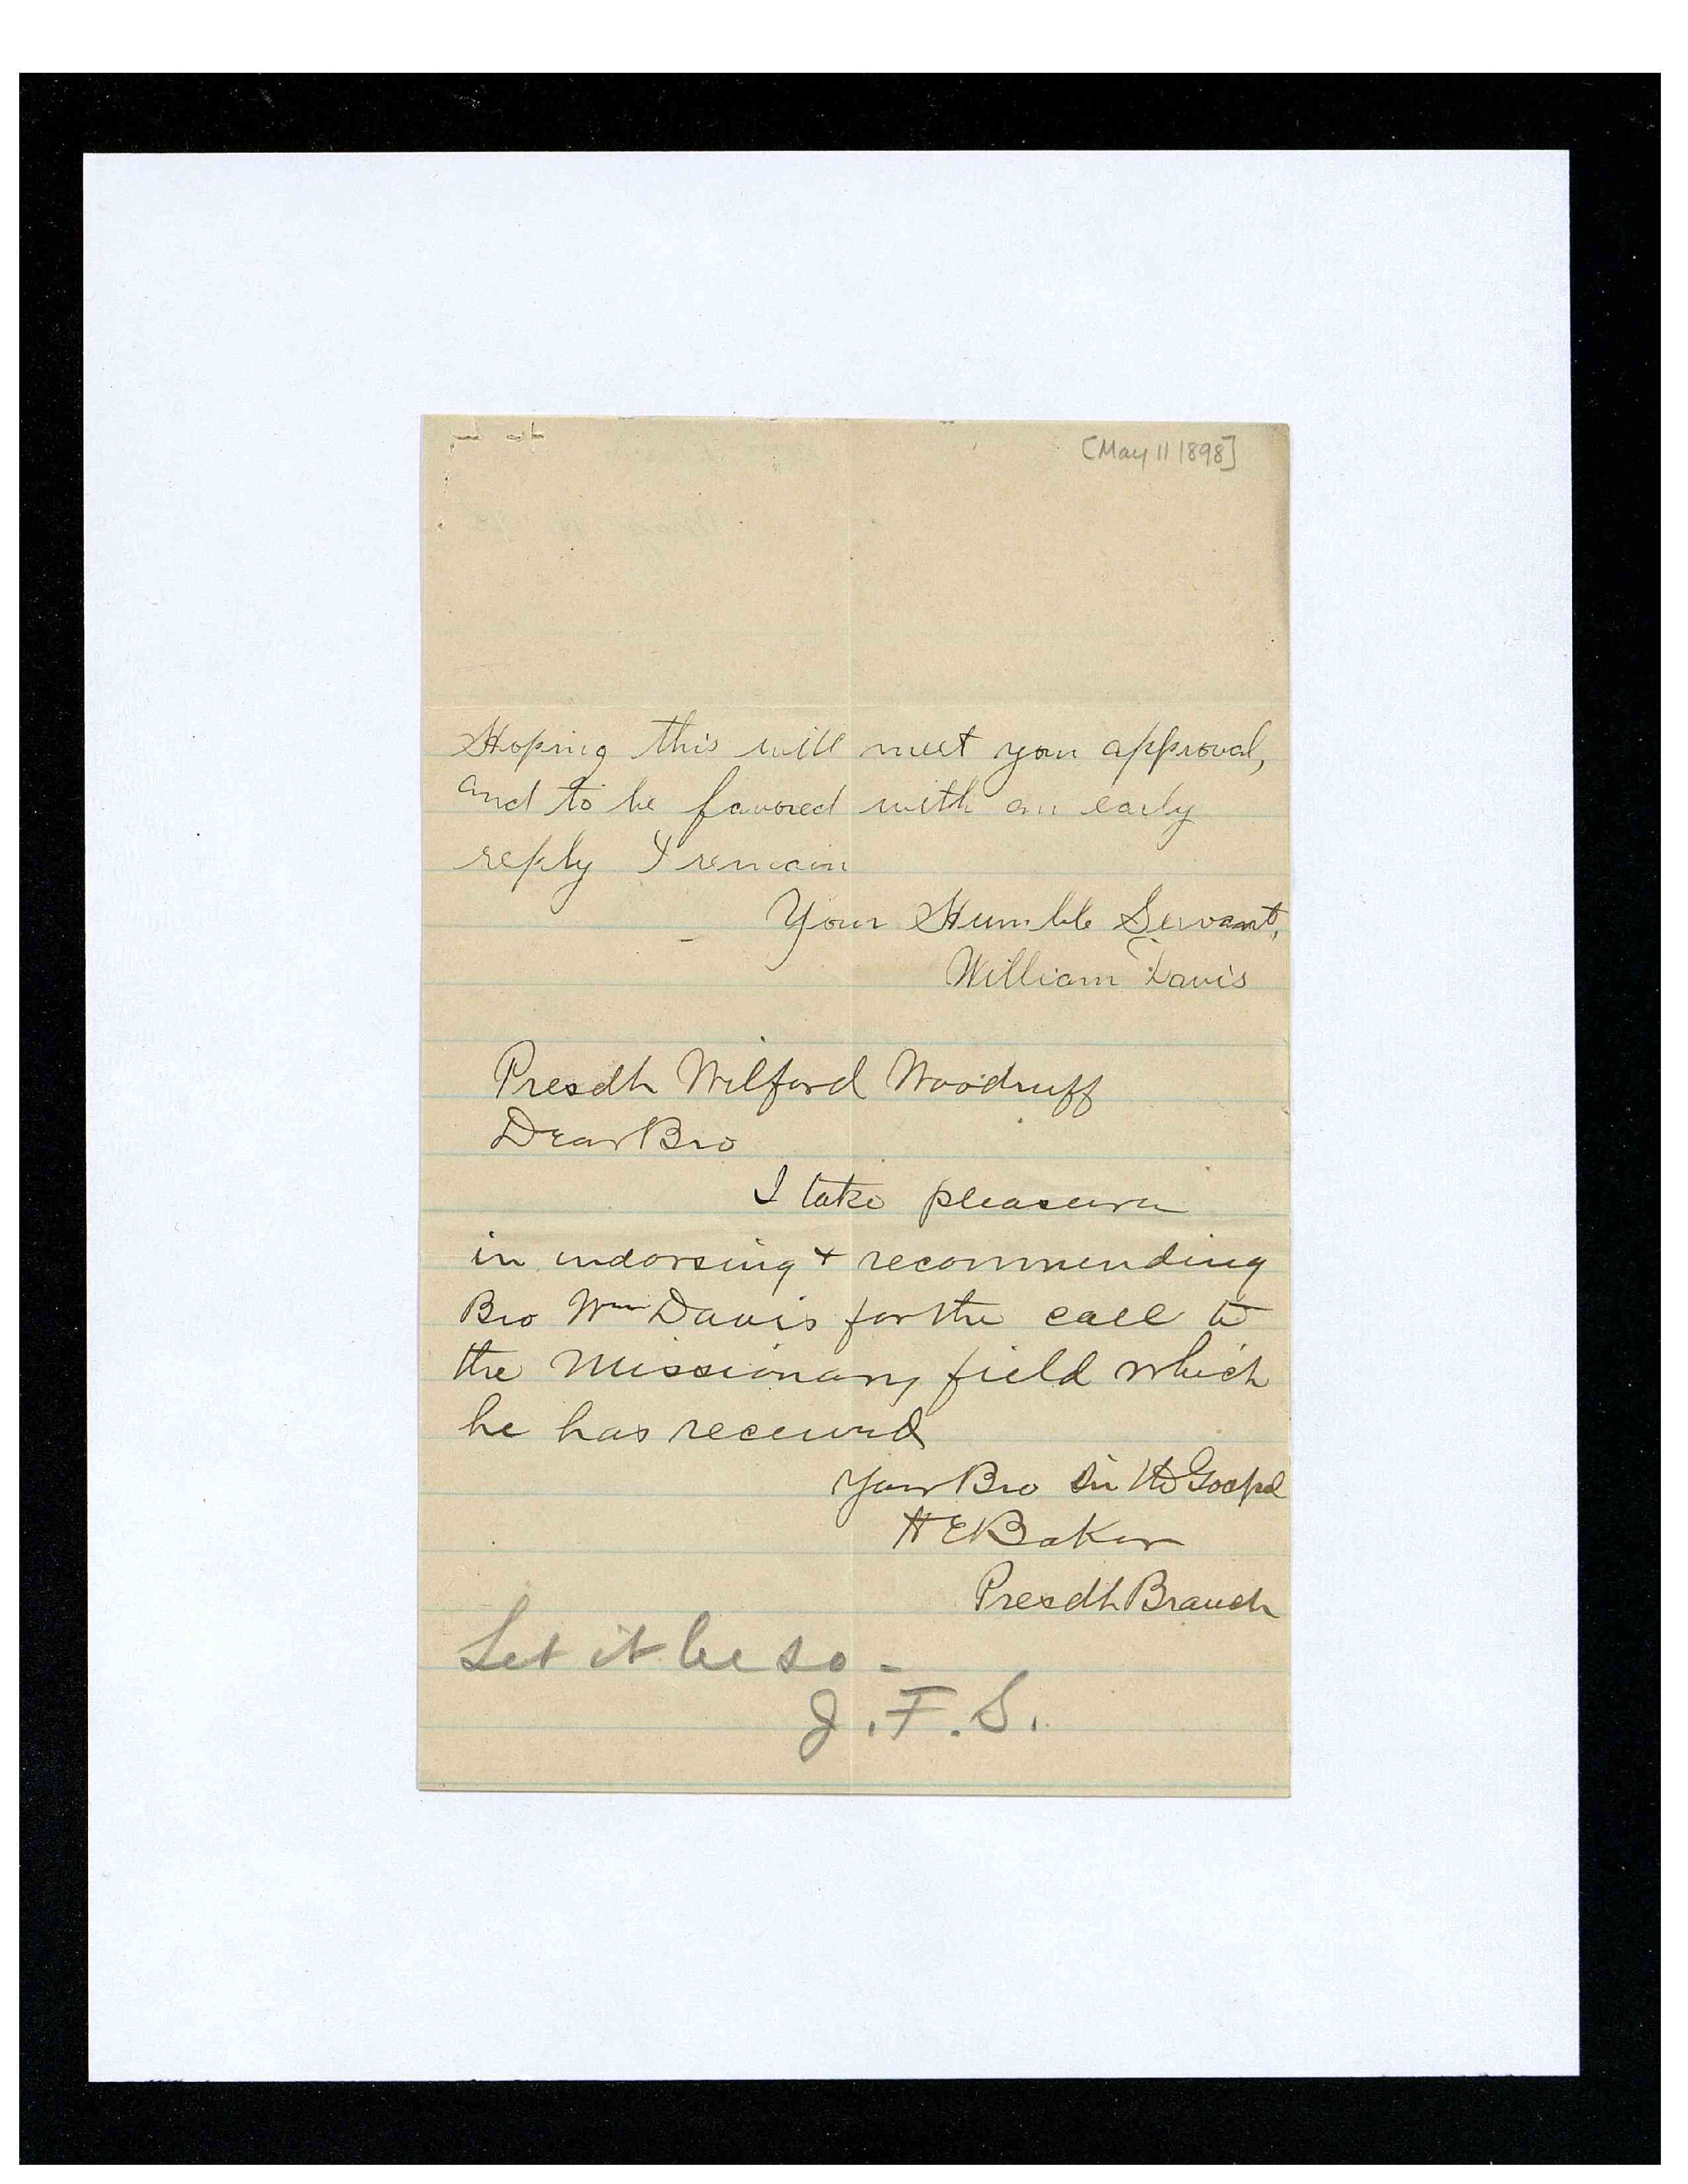 [May 11 1898]
Hoping this will meet your approval,
and to be favored with an early
reply I remain
Your Humble Servant,
William Davis
Presdt Wilford Woodruff
Dear Bro
I take pleasure
in endorsing + recommending
Bro Wm Davis for the call to
the Missionary field which
he has received
Your Bro in the Gospel
H E Baker
Presdt Branch
Let it be so -
J. F. S.